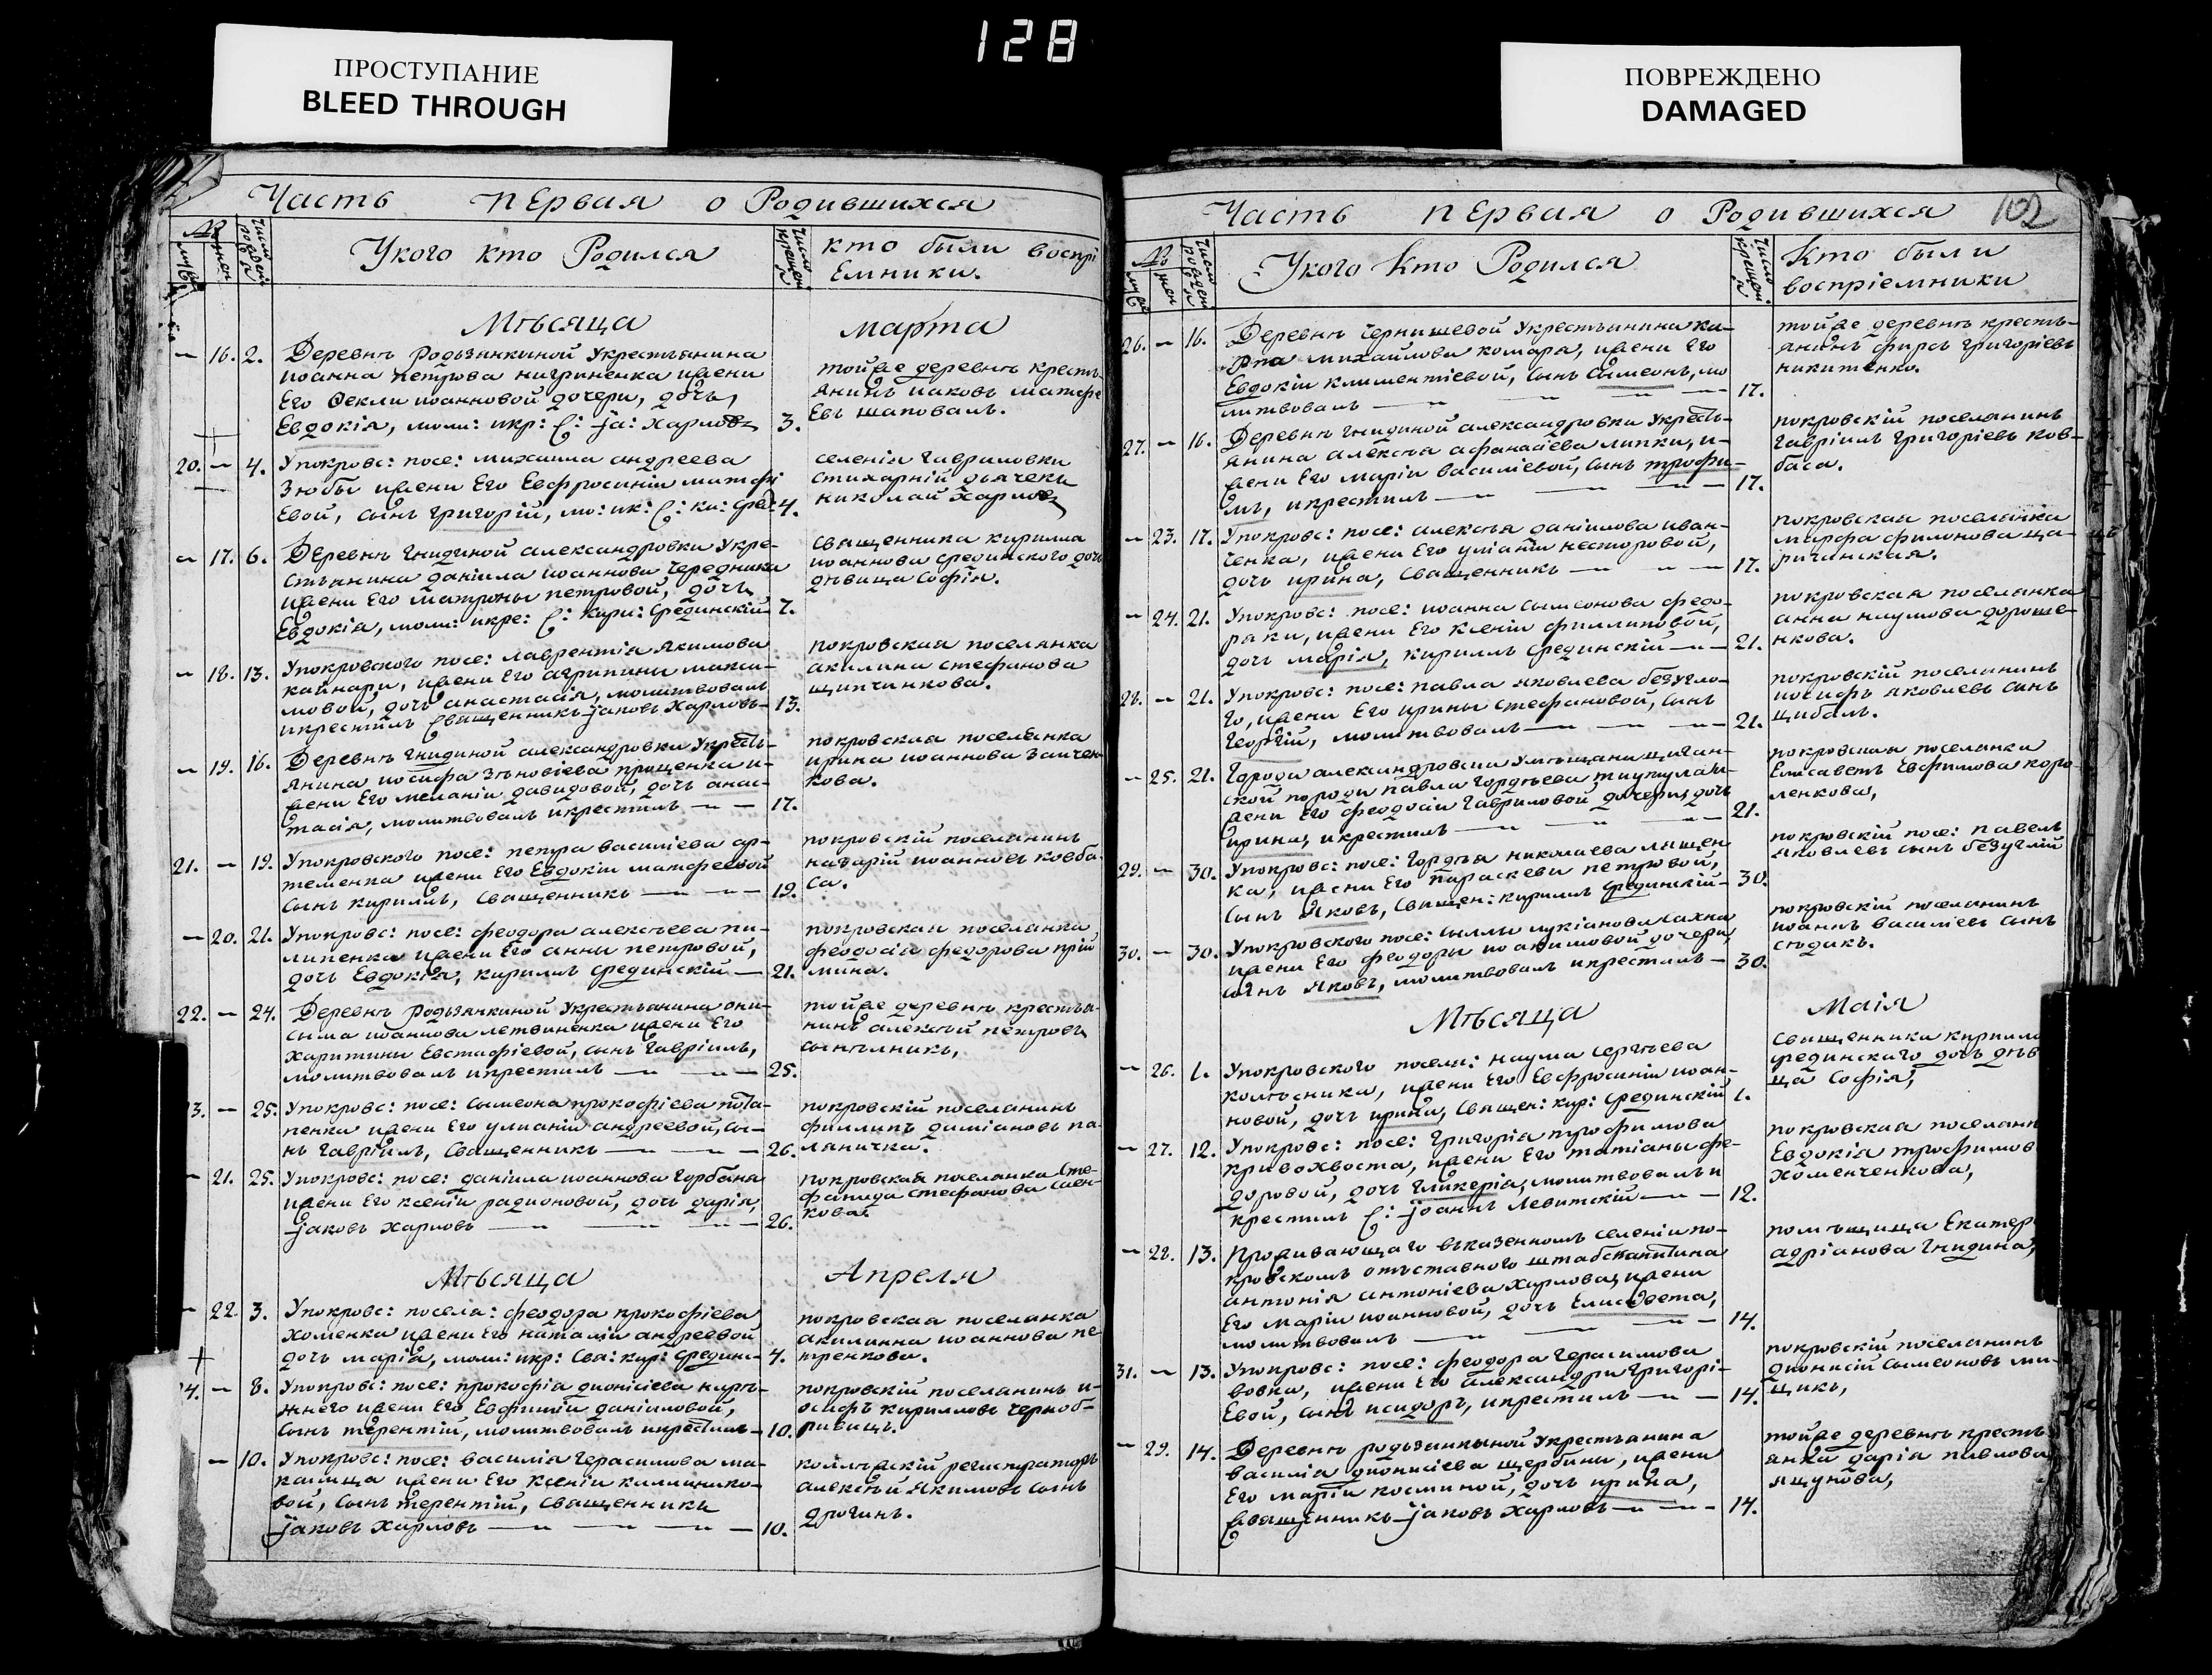 128
ПРОСТУПАНИЕ
BLEED THROUGH
ПОВРЕЖДЕНО
DAMAGED
Часть первая о Родившихся
Укого кто Родился
кто были воспрі
Емники.
Мѣсяца Марта
16. 2. Деревнѣ Родзянкиной Укрестьянина
иоанна петрова нигриненка ижени
Его Феклы иоанновой дочери, дочь,
Евдокія, моли: икр: С: Іа: Харловъ 3.
тойже деревнѣ кресть-
янинъ иаковъ матфе
Евъ шаповалъ.
20. – 4. Упокровс: посе: михаила андреева
Зюбы ижени Его Евфросиніи матфі
Евой, сынъ григорій, мо: ик: С: 4.
селенія гавриловки
стихарній дьячекъ
николай Харловъ
– 17. 6. Деревнѣ гнидиной александровки Укре-
стьянина даніила иоаннова Чередника
ижени Его матроны петровой, дочь
Евдокія, моли: икре: С: Кири: Срединскій 7.
священника кирилла
иоаннова Срединского дочь
дѣвица Софія.
– 18. 13. Упокровского посе: лаврентія Якимова
кайнары, ижени Его агрипины макси-
мовой, дочь анастасія, молитвовалъ
икрестилъ Священникъ Іаковъ Харловъ 13.
покровская поселянка
акилина стефанова
щипчинкова.
– 19. 16. Деревнѣ гнидиной александровки Укресть-
янина иосифа Зѣновіева прощенка и-
жени Его меланіи давидовой, дочь анас-
тасія, молитвовалъ икрестилъ 17.
покровская поселянка
ирина иоаннова Заичен
кова.
21. – 19. Упокровского посе: петра василіева ар-
теменка ижени Его Евдокіи матфеевой
Сынъ кириллъ, Священникъ 19.
покровскій поселянинъ
назарій иоанновъ ковба
са.
– 20. 21. Упокровс: посе: феодора алексѣева пи-
липенка ижени Его анны петровой,
дочь Евдокія, кириллъ Срединскій 21.
покровская поселянка
феодосія федорова прій
мина.
22. – 24. Деревнѣ Родзянкиной Укрестьянина они-
сима иоаннова летвиненка ижени Его
Харитины Евстафіевой, сынъ Гавріилъ,
молитвовалъ икрестилъ 25.
тойже деревнѣ крестья-
нинъ алексѣй петровъ
3. – 25. Упокровс: посе: сымеона прокофіева пота-
пенка ижени Его уліаніи андреевой, сы-
нъ Гавріилъ, Священникъ 26.
покровскій поселянинъ
филлипъ диміановъ па-
ляничка.
– 21. 25. Упокровс: посе: даніила иоаннова Горбаня
ижени Его Ксеніи радионовой, дочь дарія,
Іаковъ Харловъ 26.
покровская поселянка Сте-
фанида стефанова
кова.
Мѣсяца Апреля
– 22. 3. Упокровс: поселя: феодора прокофіева
Хоменка ижени Его наталіи андреевой
дочь марія, моли: икр: Свя: кир: Срединс 4.
покровская поселянка
акилинна иоаннова пе
тренкова.
4. – 8. Упокровс: посе: прокофія дионісіева
ижени Его Евфиміи даніиловой,
Сынъ терентій, молитвовалъ икрестилъ 10.
покровскій поселянинъ и-
осифъ кирилловъ чорноб-
ривецъ.
– 10. Упокровс: посе: василія герасимова ма-
ижени Его Ксеніи калинико-
вой, Сынъ терентій, Священникъ
Іаковъ Харловъ 10.
коллежскій регистраторъ
алексѣй Якимовъ сынъ
дрогинъ.
102
Часть первая о Родившихся
Укого кто Родился
Кто были
воспріемники
26. – 16. Деревнѣ Чернишевой Укрестьянина ка-
рпа михайлова комара, ижени Его
Евдокіи климентіевой, Сынъ Сымеонъ, мо
литвовалъ 17.
тойже деревнѣ кресть-
янинъ фирсъ григоріевъ
никитенко.
27. – 16. Деревнѣ гнидиной александровки Укресть-
янина алексѣя афанасіева липки, и-
жени Его маріи василіевой, Сынъ трофи-
мъ, икрестилъ 17.
покровскій поселянинъ
Гавріилъ григоріевъ ков-
баса.
– 23. 17. Упокровс: посе: алексѣя даніилова иван-
ченка, ижени Его уліаніи несторовой,
дочь ирина, Священникъ 17.
покровская поселянка
марфа филонова ца-
ричинская.
– 24. 21. Упокровс: посе: иоанна сымеонова федо-
ряки, ижени Его Ксеніи филлиповой,
дочь марія, кириллъ Срединскій 21.
покровская поселянка
анна наумова дороше-
нкова.
28. – 21. Упокровс: посе: павла яковлева безугло-
го, ижени Его ирины стефановой, Сынъ
Георгій, молитвовалъ 21.
покровскій поселянинъ
иосифъ яковлевъ сынъ
цибаль.
– 25. 21. Города александровска Умѣщанина циган-
ской породы павла гордѣева и-
жени Его феодосіи гавриловой дочери, дочь
ирина, икрестилъ 21.
покровская поселянка
Елисаветъ Евфимова коро-
ленкова,
29. – 30. Упокровс: посе: гордѣя николаева ляшен
ка, ижени Его параскеви петровой,
Сынъ Яковъ, Священ: кириллъ Срединскій 30.
покровскій посе: павелъ
Яковлевъ сынъ безуглій
30. – 30. Упокровского посе: сыллы лукіанова
ижени Его феодоры иоакимовой дочери,
сынъ Яковъ, молитвовалъ икрестилъ 30.
покровскій поселянинъ
иоаннъ василіевъ сынъ
сѣдакъ.
Мѣсяца Маія
– 26. 1. Упокровского посели: наума сергѣева
колѣсника, ижени Его Евфросиніи иоан-
новой, дочь ирина, Священ: кир: Срединскій 1.
священника кирилл
Срединскаго дочь дѣв
ца Софія,
– 27. 12. Упокровс: посе: григорія трофимова
кривохвоста, ижени Его татіаны фе-
доровой, дочь гликерія, молитвовалъ и
крестилъ С: Іоаннъ Левитскій 12.
покровская поселянк
Евдокія трофимов
Хоменченкова,
– 28. 13. Проживающаго вказенномъ селеніи по-
кровскомъ отъставного штабскапитана
антонія антоніева Харлова, ижени
Его маріи иоанновой, дочь Елисавета,
молитвовалъ 14.
помѣщица Екатер
адріанова гнидина,
31. – 13. Упокровс: посе: феодора герасимова
вовка, ижени Его александры григорі-
Евой, сынъ исидоръ, икрестилъ 14.
покровскій поселянинъ
дионисій сымеоновъ ми-
щикъ,
– 29. 14. Деревнѣ родзянкыной Укрестьянина
василія дионисіева щербины, ижени
Его маріи косминой, дочь ирина,
Священникъ Іаковъ Харловъ 14.
тойже деревнѣ кресть
янка дарія павлова
ящунова,